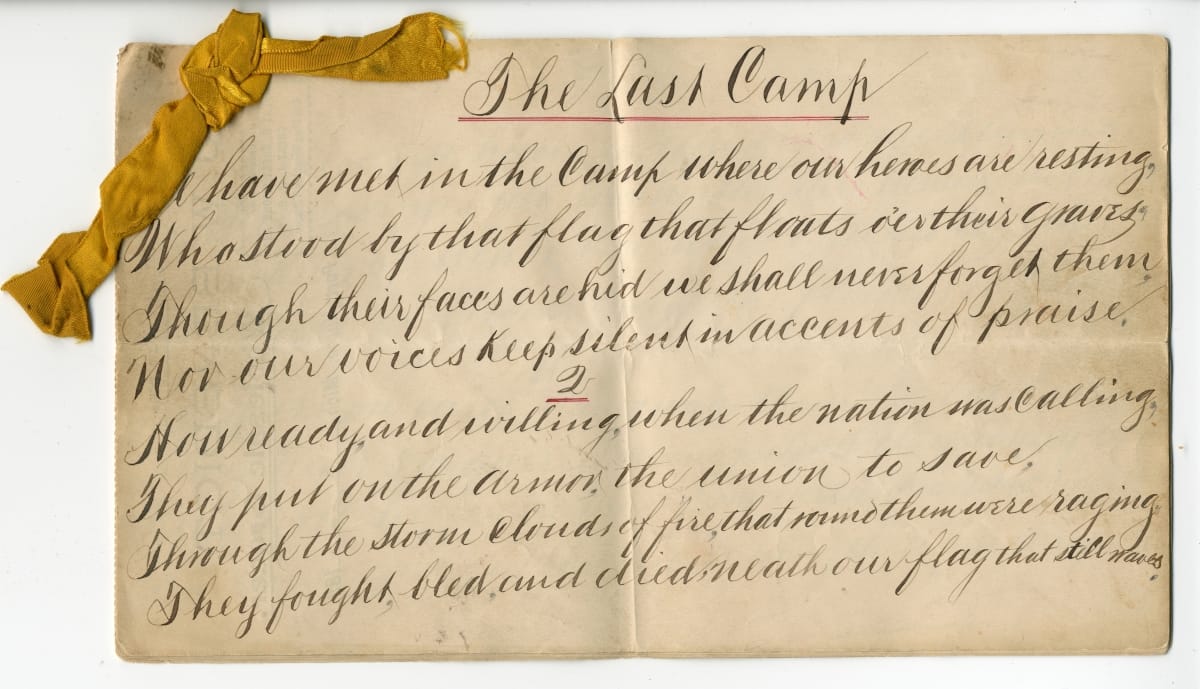 The Last Camp
have met in the Camp where our heroes are resting,
Who stood by that flag that floats o'er their graves;
Though their faces are hid we shall never forget them,
Nor our voices keep silent in accents of praise.
2
How ready, and willing, when the nation was calling,
They put on the armor, the union to save,
Through the storm clouds of fire, that round them were raging,
They fought, bled, and died, neath our flag that still waves.